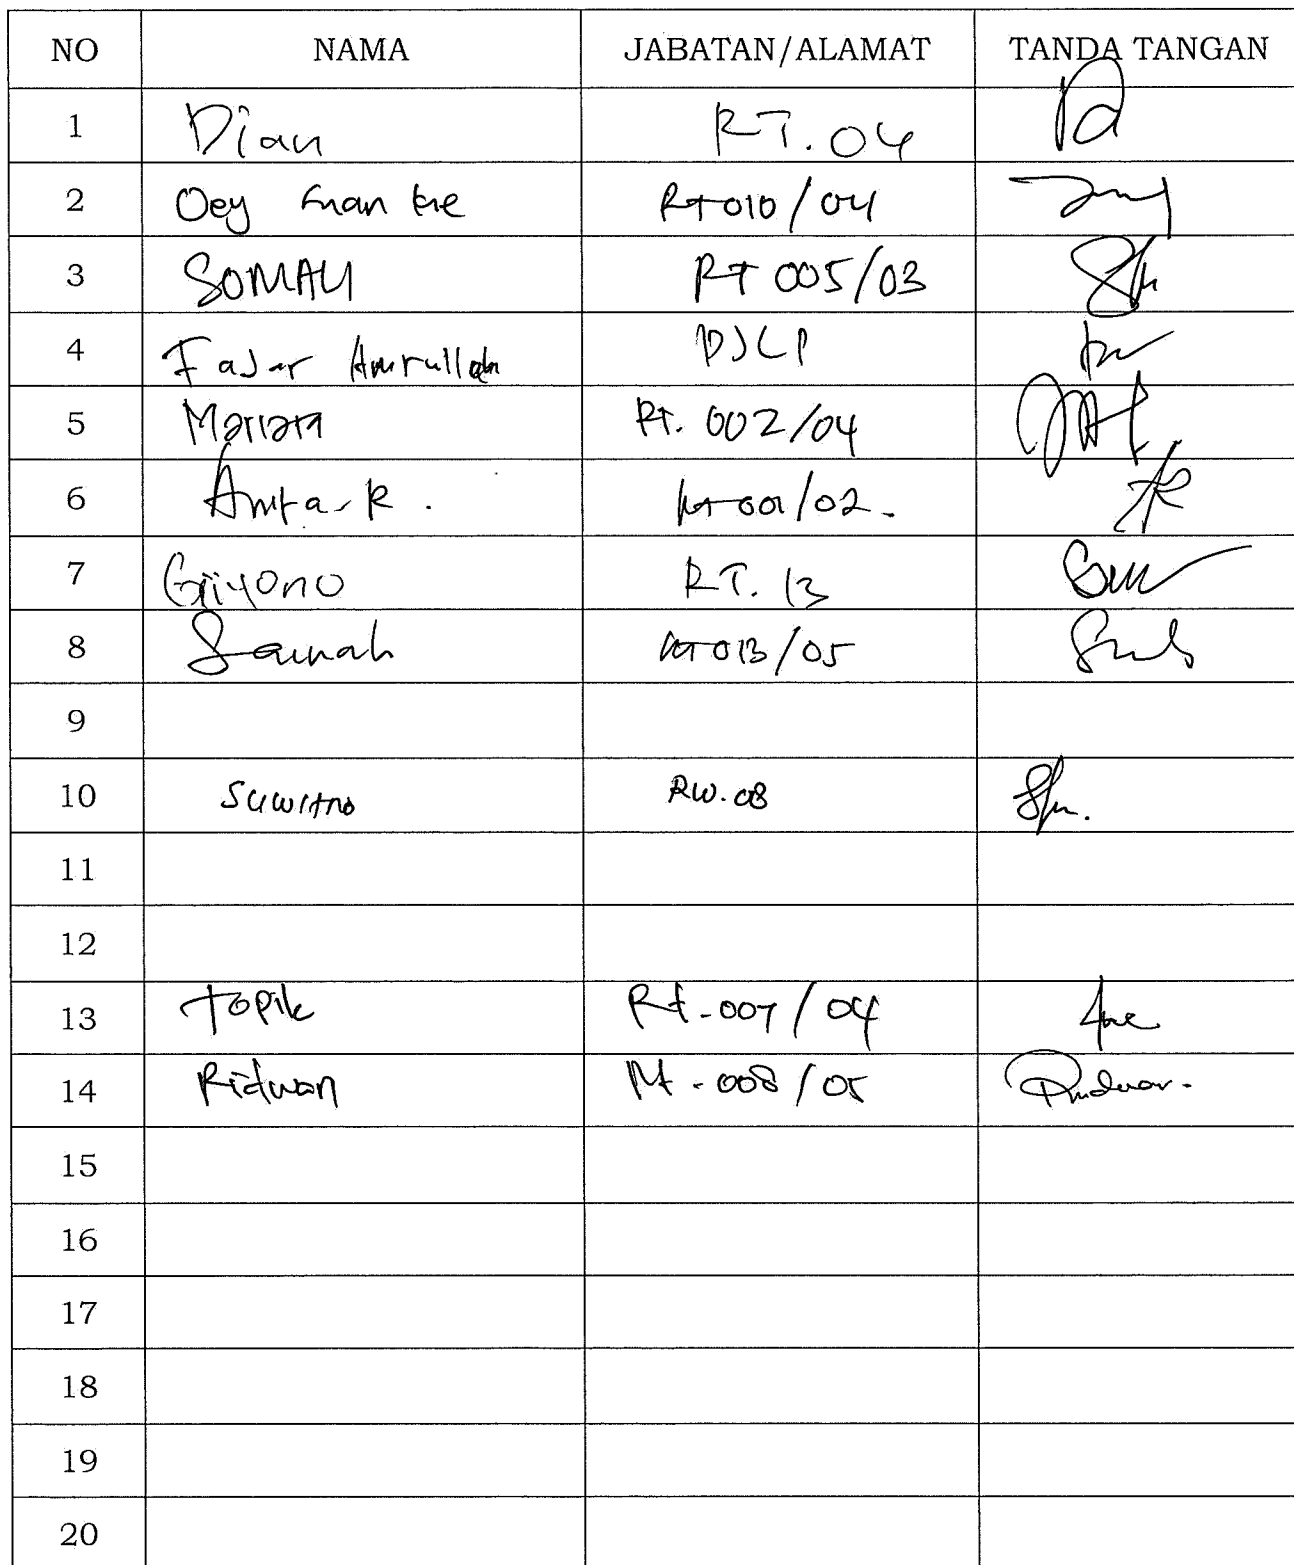 NO NAMA JABATAN/ALAMAT TANDA TANGAN
1 Dian RT. 04
2 Oey RT 010/04
3 SOMALI RT 005/03
4 Fajar Amrullah PJLP
5 RT. 002/04
6 Anita R. RT 001/02.
7 Giiyono RT. 13
8 Sainah RT 013/05
9
10 Suwitno RW. 08
11
12
13 Topik Rt-007/04
14 Ridwan Rt-008/05
15
16
17
18
19
20